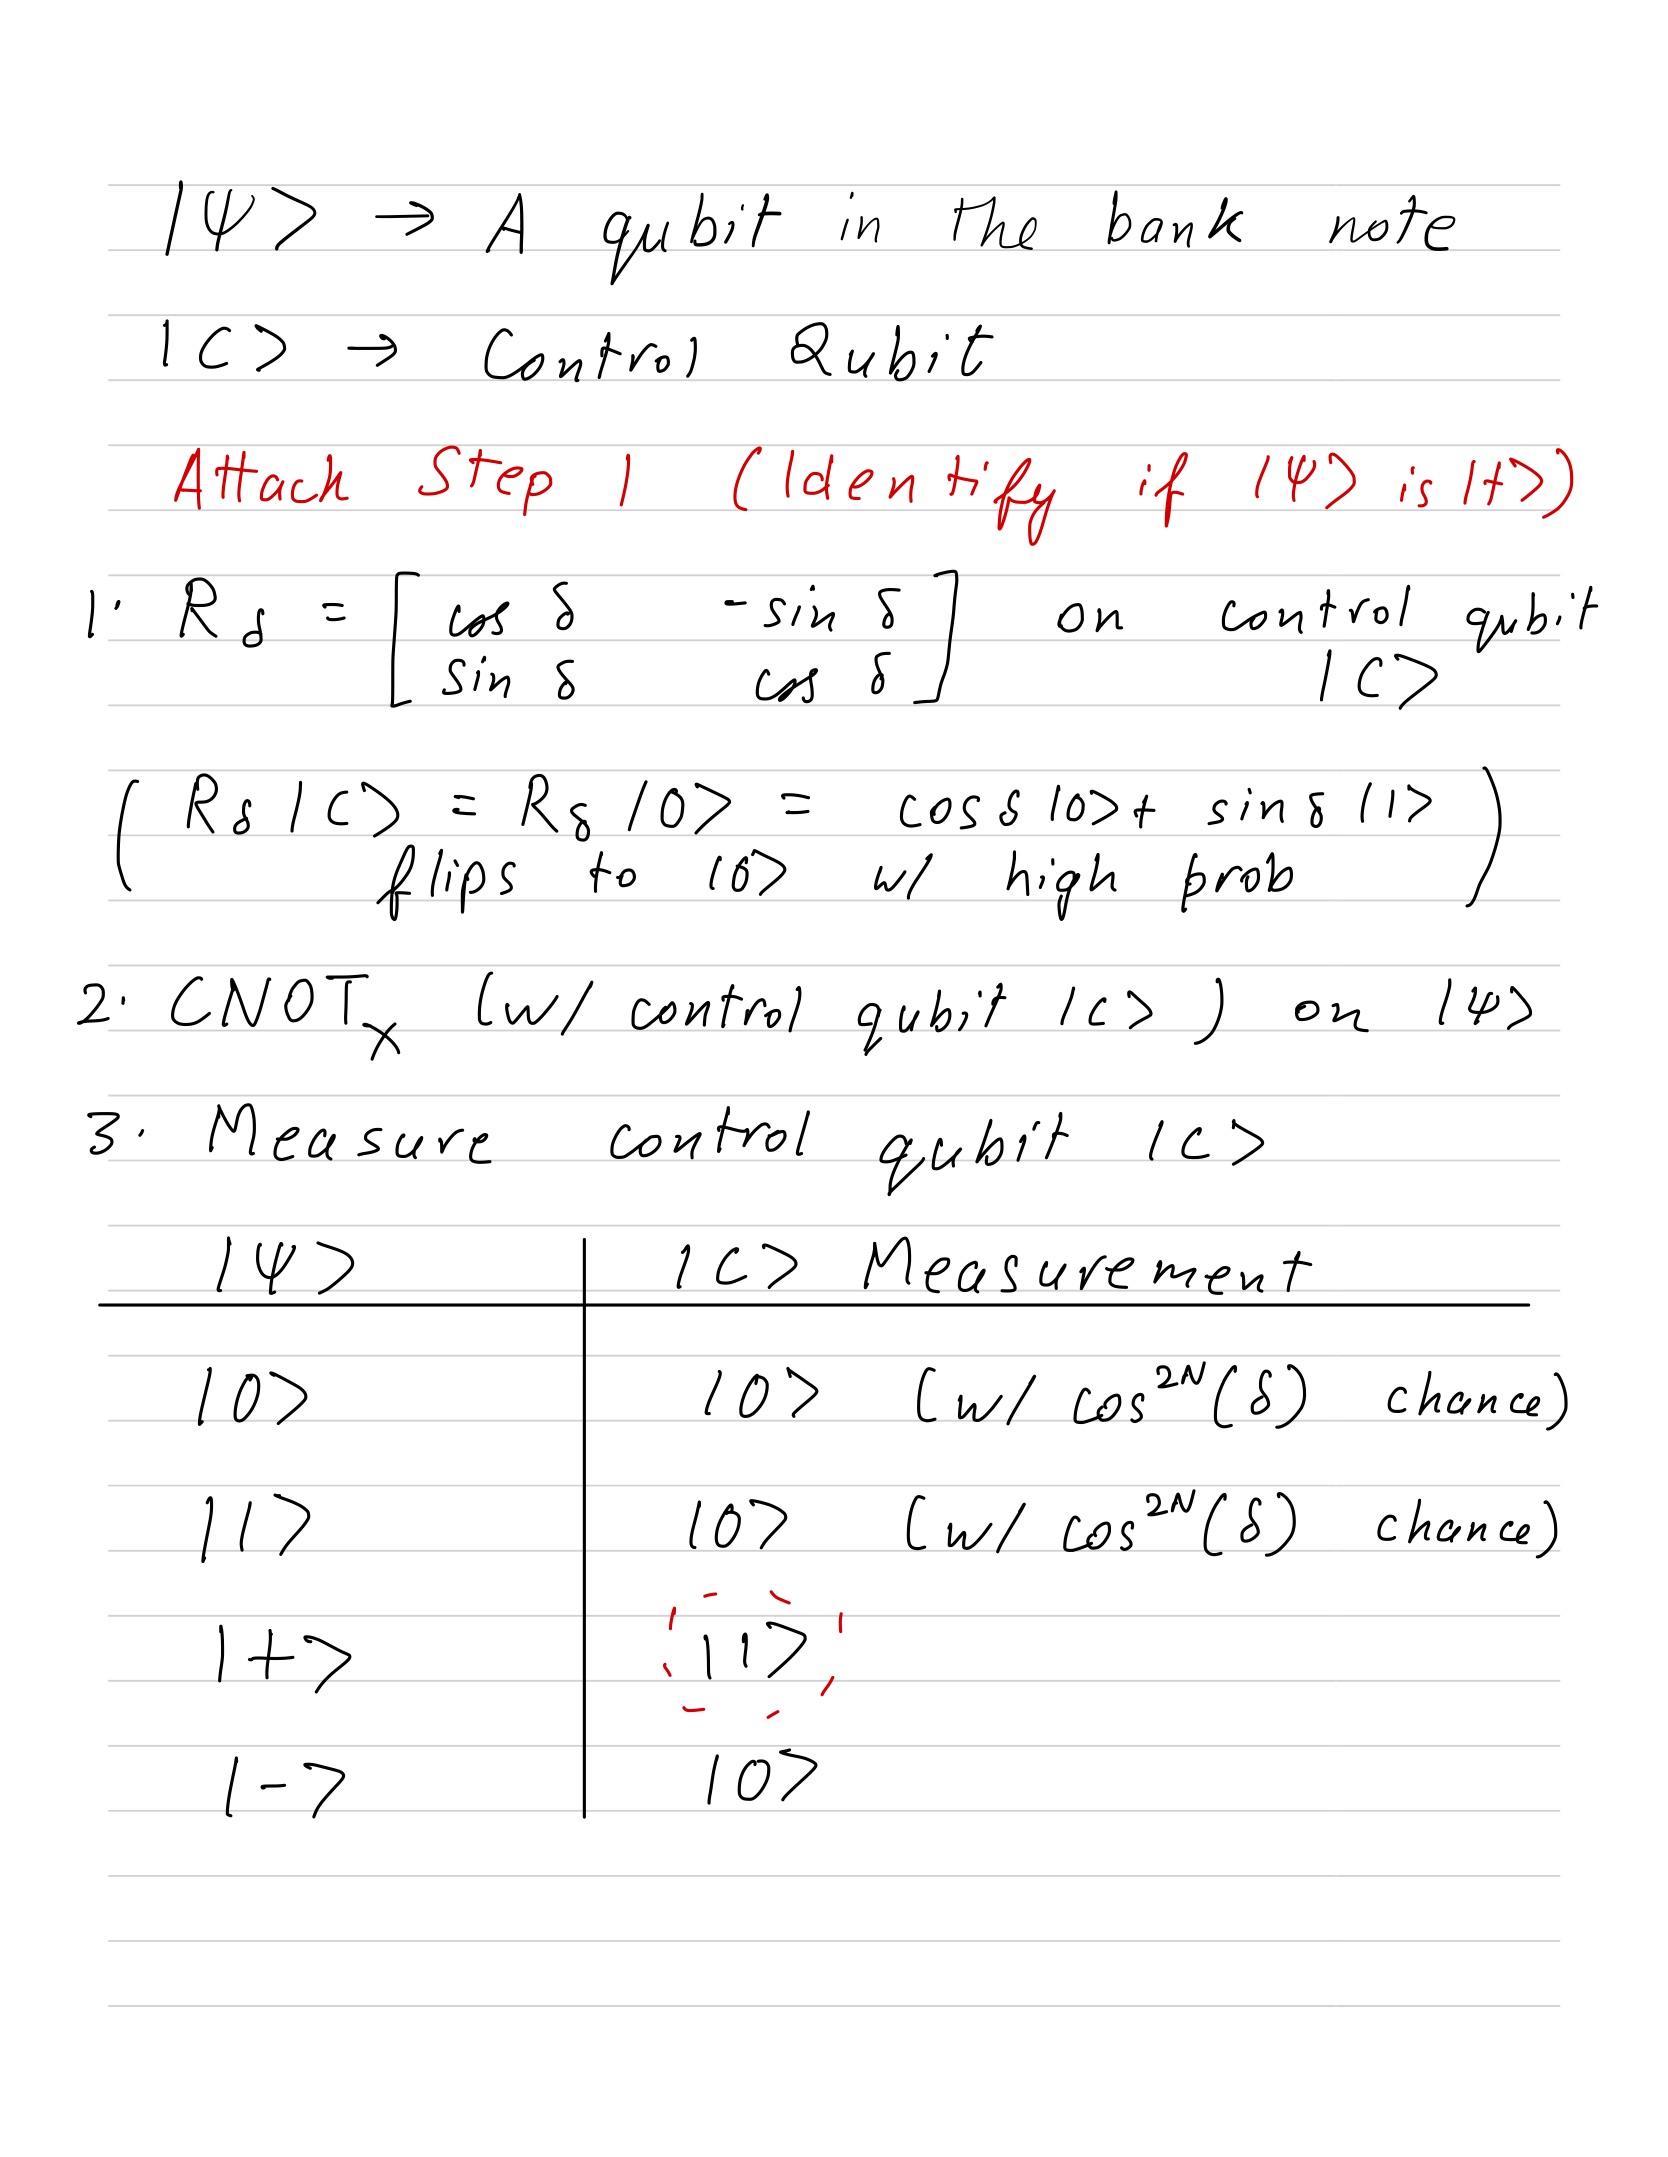 |Ψ> → A qubit in the bank note
|C> → Control Qubit
Attach Step 1 (Identify if |Ψ> is |+>)
1. R_δ = [cos δ -sin δ] on control qubit
[sin δ cos δ] |C>
(R_δ |C> = R_δ |0> = cos δ |0> + sin δ |1>
flips to |0> w/ high prob)
2. CNOT_X (w/ control qubit |C>) on |Ψ>
3. Measure control qubit |C>
|Ψ> |C> Measurement
|0> |0> (w/ cos^2N(δ) chance)
|1> |0> (w/ cos^2N(δ) chance)
|+> |1>
|-> |0>